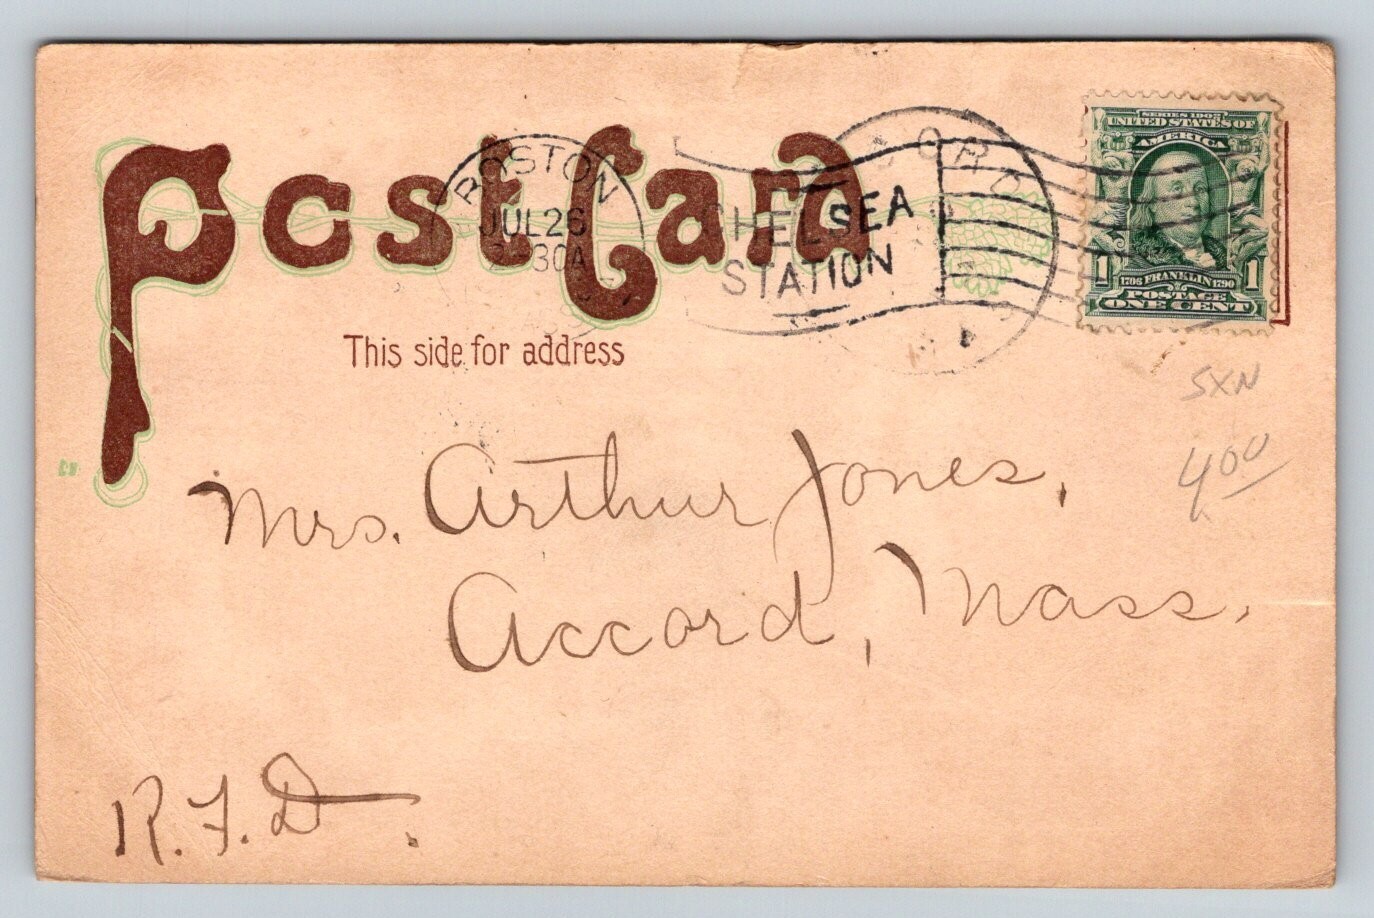 Post Card
BOSTON
JUL 26
30A
CHELSEA
STATION
SERIES 1902
UNITED STATES OF
AMERICA
1 1
1706 FRANKLIN 1790
POSTAGE
ONE CENT
This side for address
SXN
4.00
Mrs. Arthur Jones,
Accord, Mass.
R.F.D.